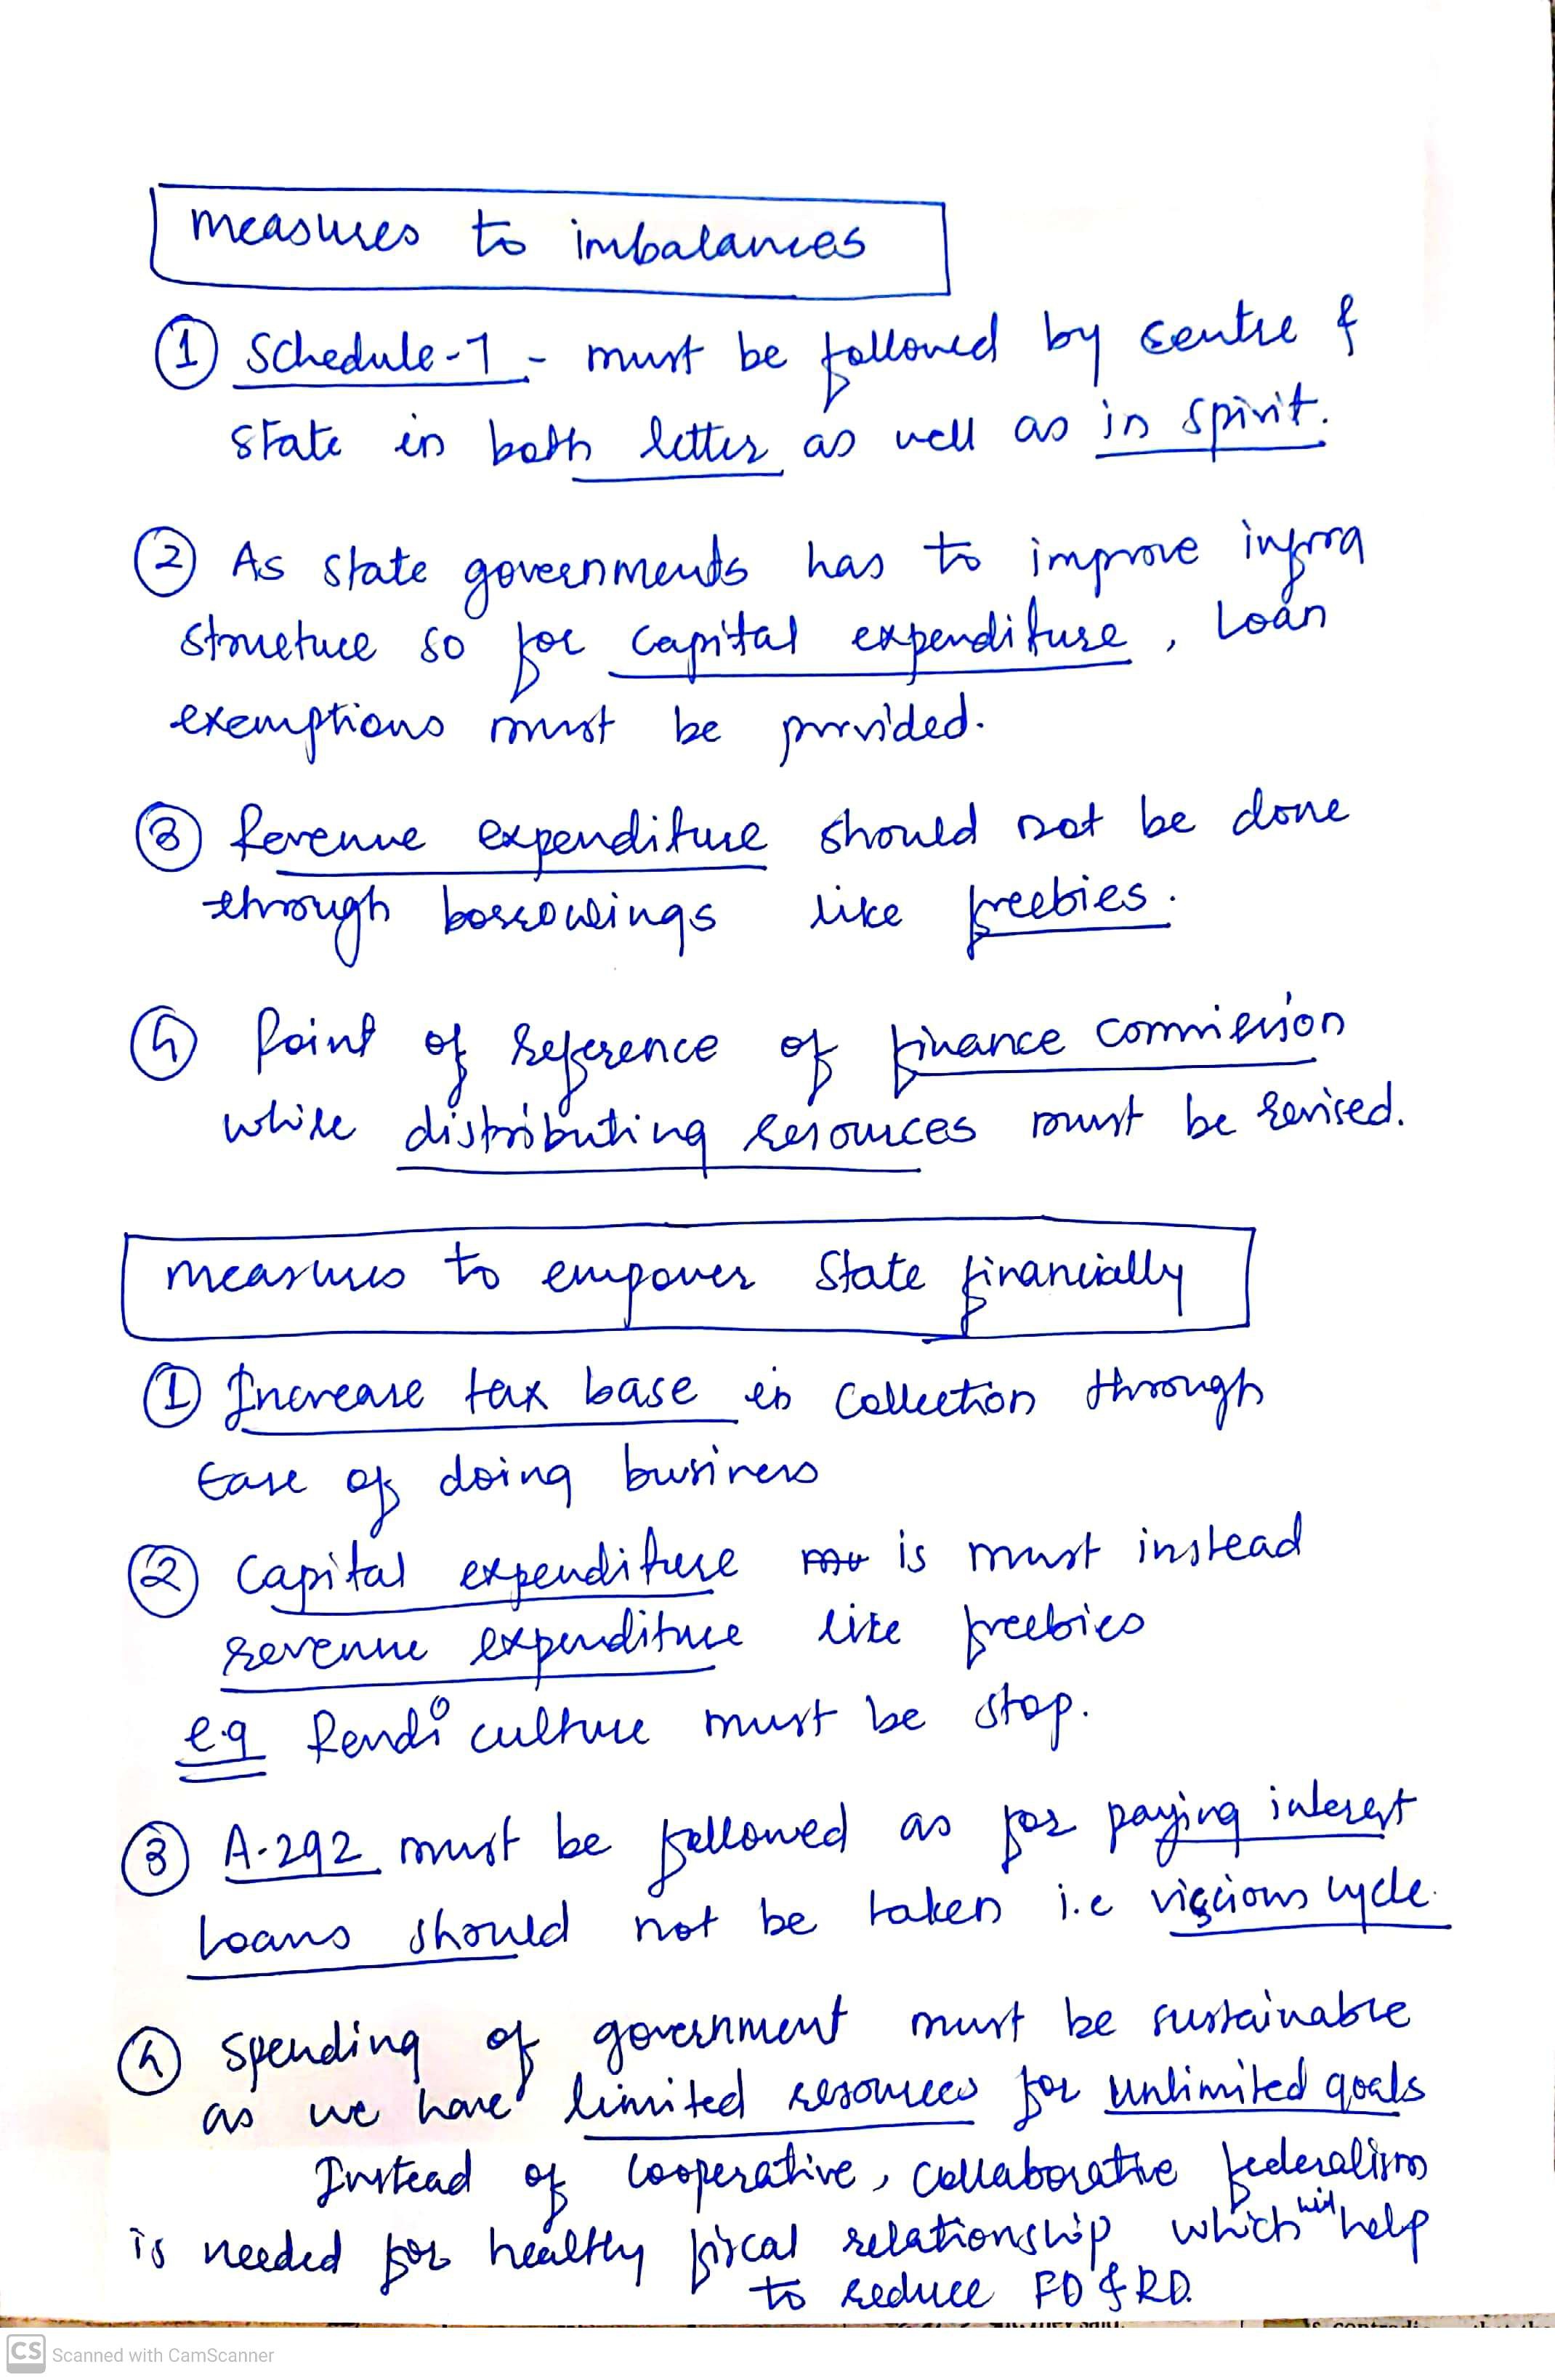 measures to imbalances
① Schedule-7 - must be followed by centre &
state in both letter as well as in spirit.
② As state governments has to improve infra
structure so for capital expenditure, loan
exemptions must be provided.
③ Revenue expenditure should not be done
through borrowings like freebies.
④ Point of reference of finance commission
while distributing resources must be revised.
measures to empower State financially
① Increase tax base in collection through
Ease of doing business
② Capital expenditure is must instead
revenue expenditure like freebies
e.g Revdi culture must be stop.
③ A-292 must be followed as for paying interest
loans should not be taken i.e viscious cycle.
④ spending of government must be sustainable
as we have limited resources for unlimited goals
Instead of cooperative, collaborative federalism
is needed for healthy fiscal relationship which will help
to reduce FD & RD.
CS Scanned with CamScanner